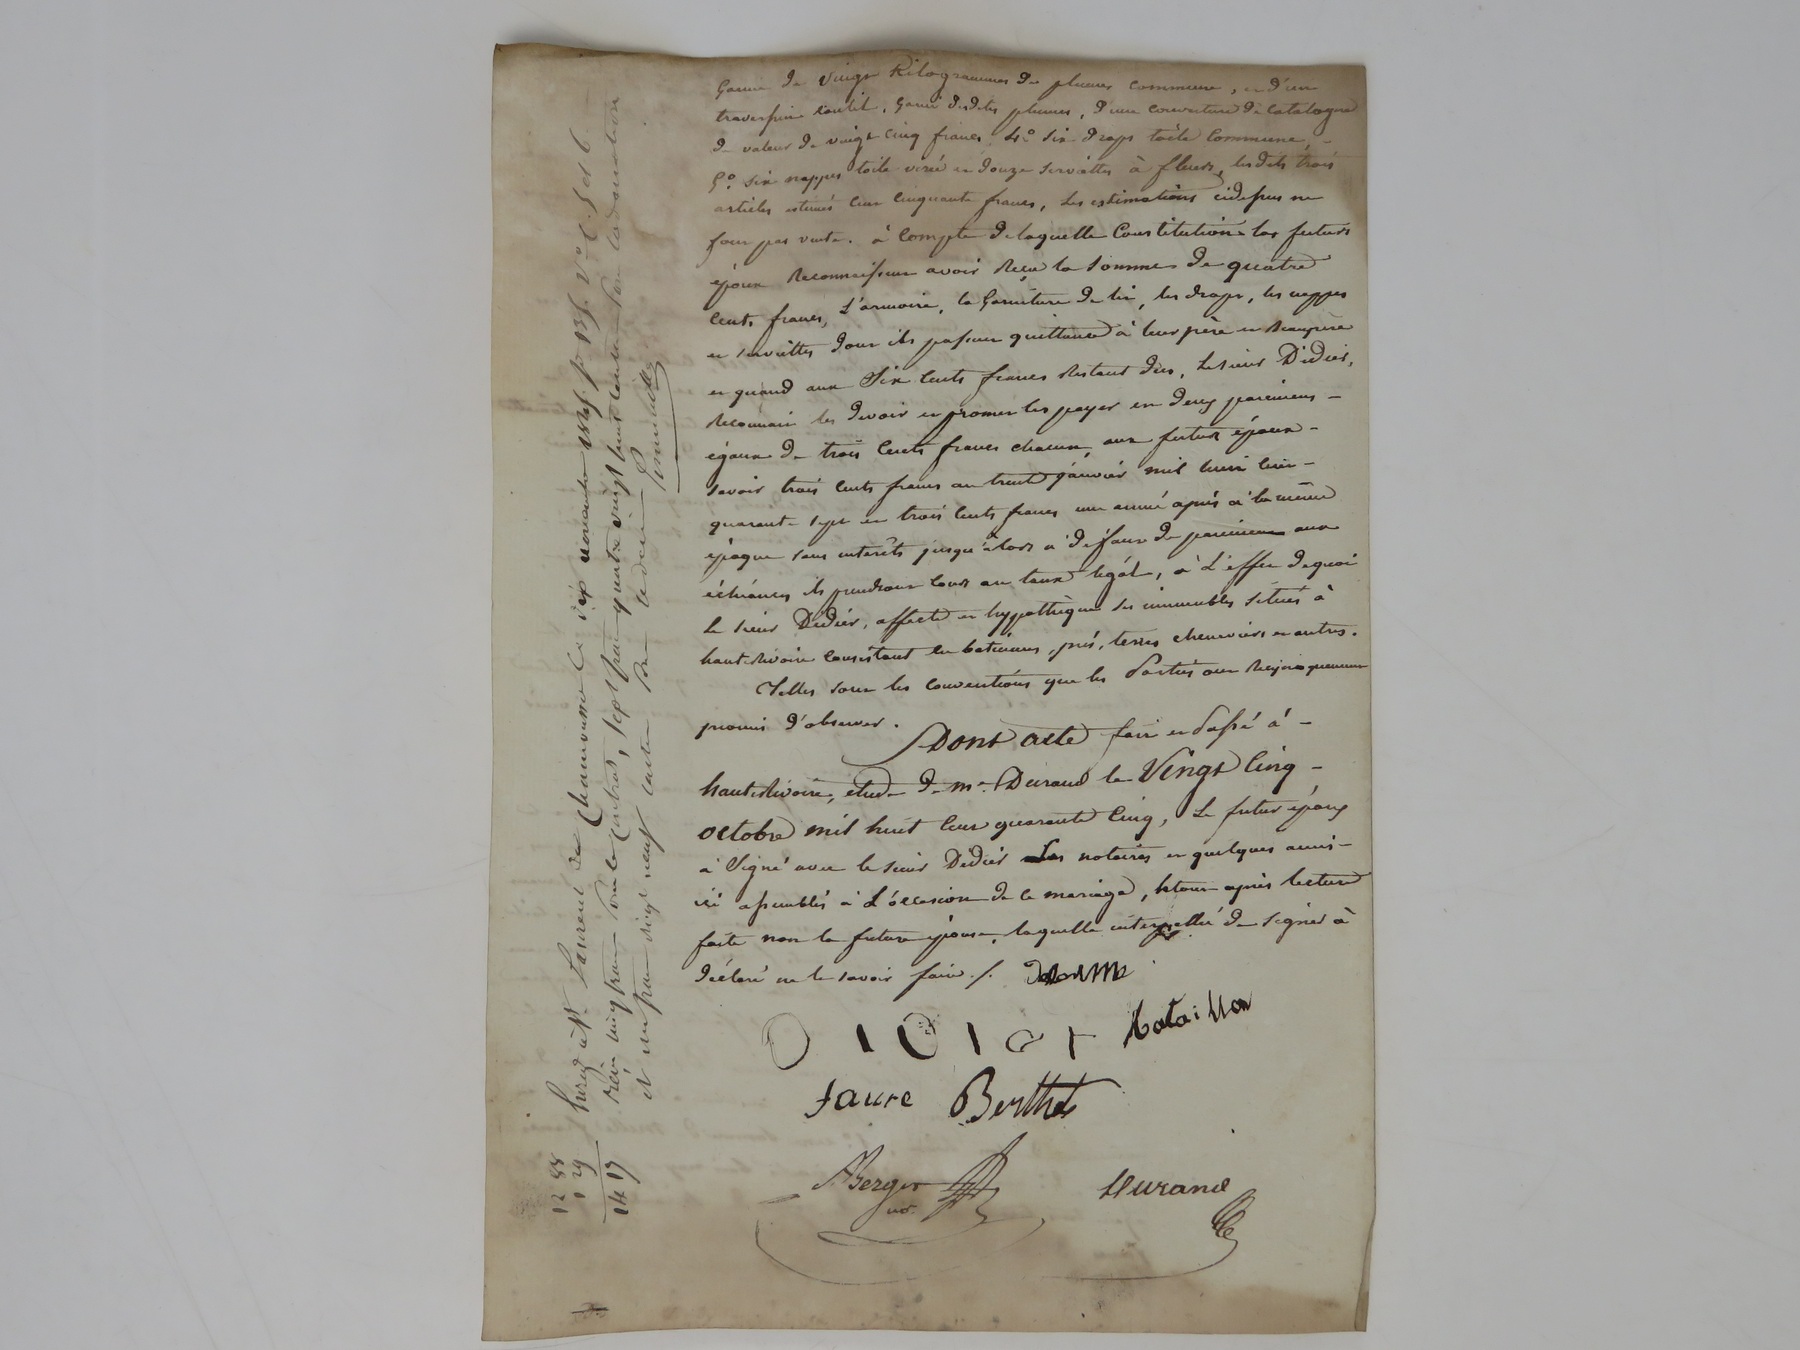 Garnie de vingt Kilogrammes de plumes commune, et d'un
traversin coutil, garni desdites plumes, d'une couverture de Catalogne
de valeur de vingt cinq francs, 4° six draps toile Commune, -
5° six nappes toile virée et douze serviettes à fleurs, lesdits trois
articles estimés cent cinquante francs, les estimations cidessus ne
font pas vente. à Compte de laquelle Constitution les futurs
époux Reconnaissent avoir Reçu la somme de quatre
cents francs, L'armoire, la Garniture de lit, les draps, les nappes
et serviettes dont ils passent quittance à leur père et Beaupère
et quand aux Six cents francs Restant dus, Le sieur Didier,
Reconnait les devoir et promet les payer en deux paiemens -
égaux de trois Cents francs chacun, aux futurs époux -
savoir trois cents francs au trente janvier mil huit cent -
quarante sept et trois cents francs une année après à la même
époque sans intérêts jusqu'alors et à défaut de paiement aux
échéances ils prendront cours au taux légal, à L'effet de quoi
Le sieur Didier, affecte et hypothèque ses immeubles situés à
hauterivoire consistant en batimens, prés, terres chenevières et autres.
Telles sont les conventions que les Parties ont Réciproquement
promis d'observer.
Dont acte fait et Passé à -
hauterivoire, étude de me. Durand le Vingt Cinq -
octobre mil huit cent quarante Cinq, Le futur époux
à Signé avec le sieur Didier Les notaires et quelques amis -
ici assemblés à L'occasion de ce mariage, le tout après lecture
faite non la future épouse, laquelle interpellée de signer à
déclaré ne le savoir faire ./.
DIDIER Bataillon
faure Berthet
Berger
no.
Durand
Enregistré à St Laurent de Chamousset le dix novembre 1845 f°
Reçu cinq francs pour le Contrat, sept francs quatre vingt huit centimes pour la donation
et un franc vingt neuf centimes pour le décime
12 88
1 29
14 17